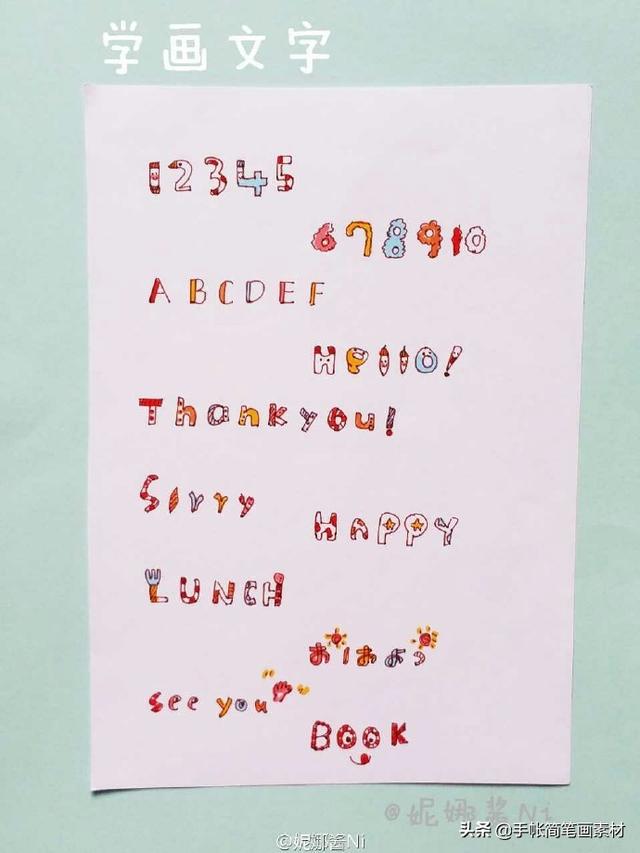 学画文字
12345
678910
ABCDEF
Hello!
Thankyou!
Sorry
HAPPY
LUNCH
おはよう
see you
BOOK
@妮娜酱Ni
头条 @手帐简笔画素材
@妮娜酱Ni